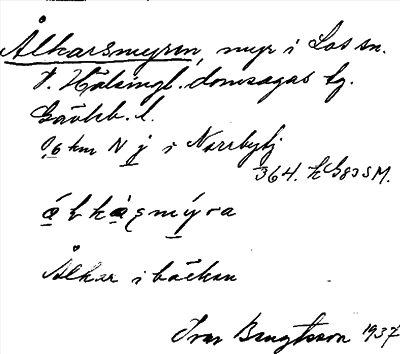 Ålkarsmyren, myr i Los sn.
V. Hälsingl. domsagas tg.
Gävleb. l.
0,6 km N y i Norrbybg
364. h G83 S M.
Ålkar i bäcken
Ivar Bengtsson 1937